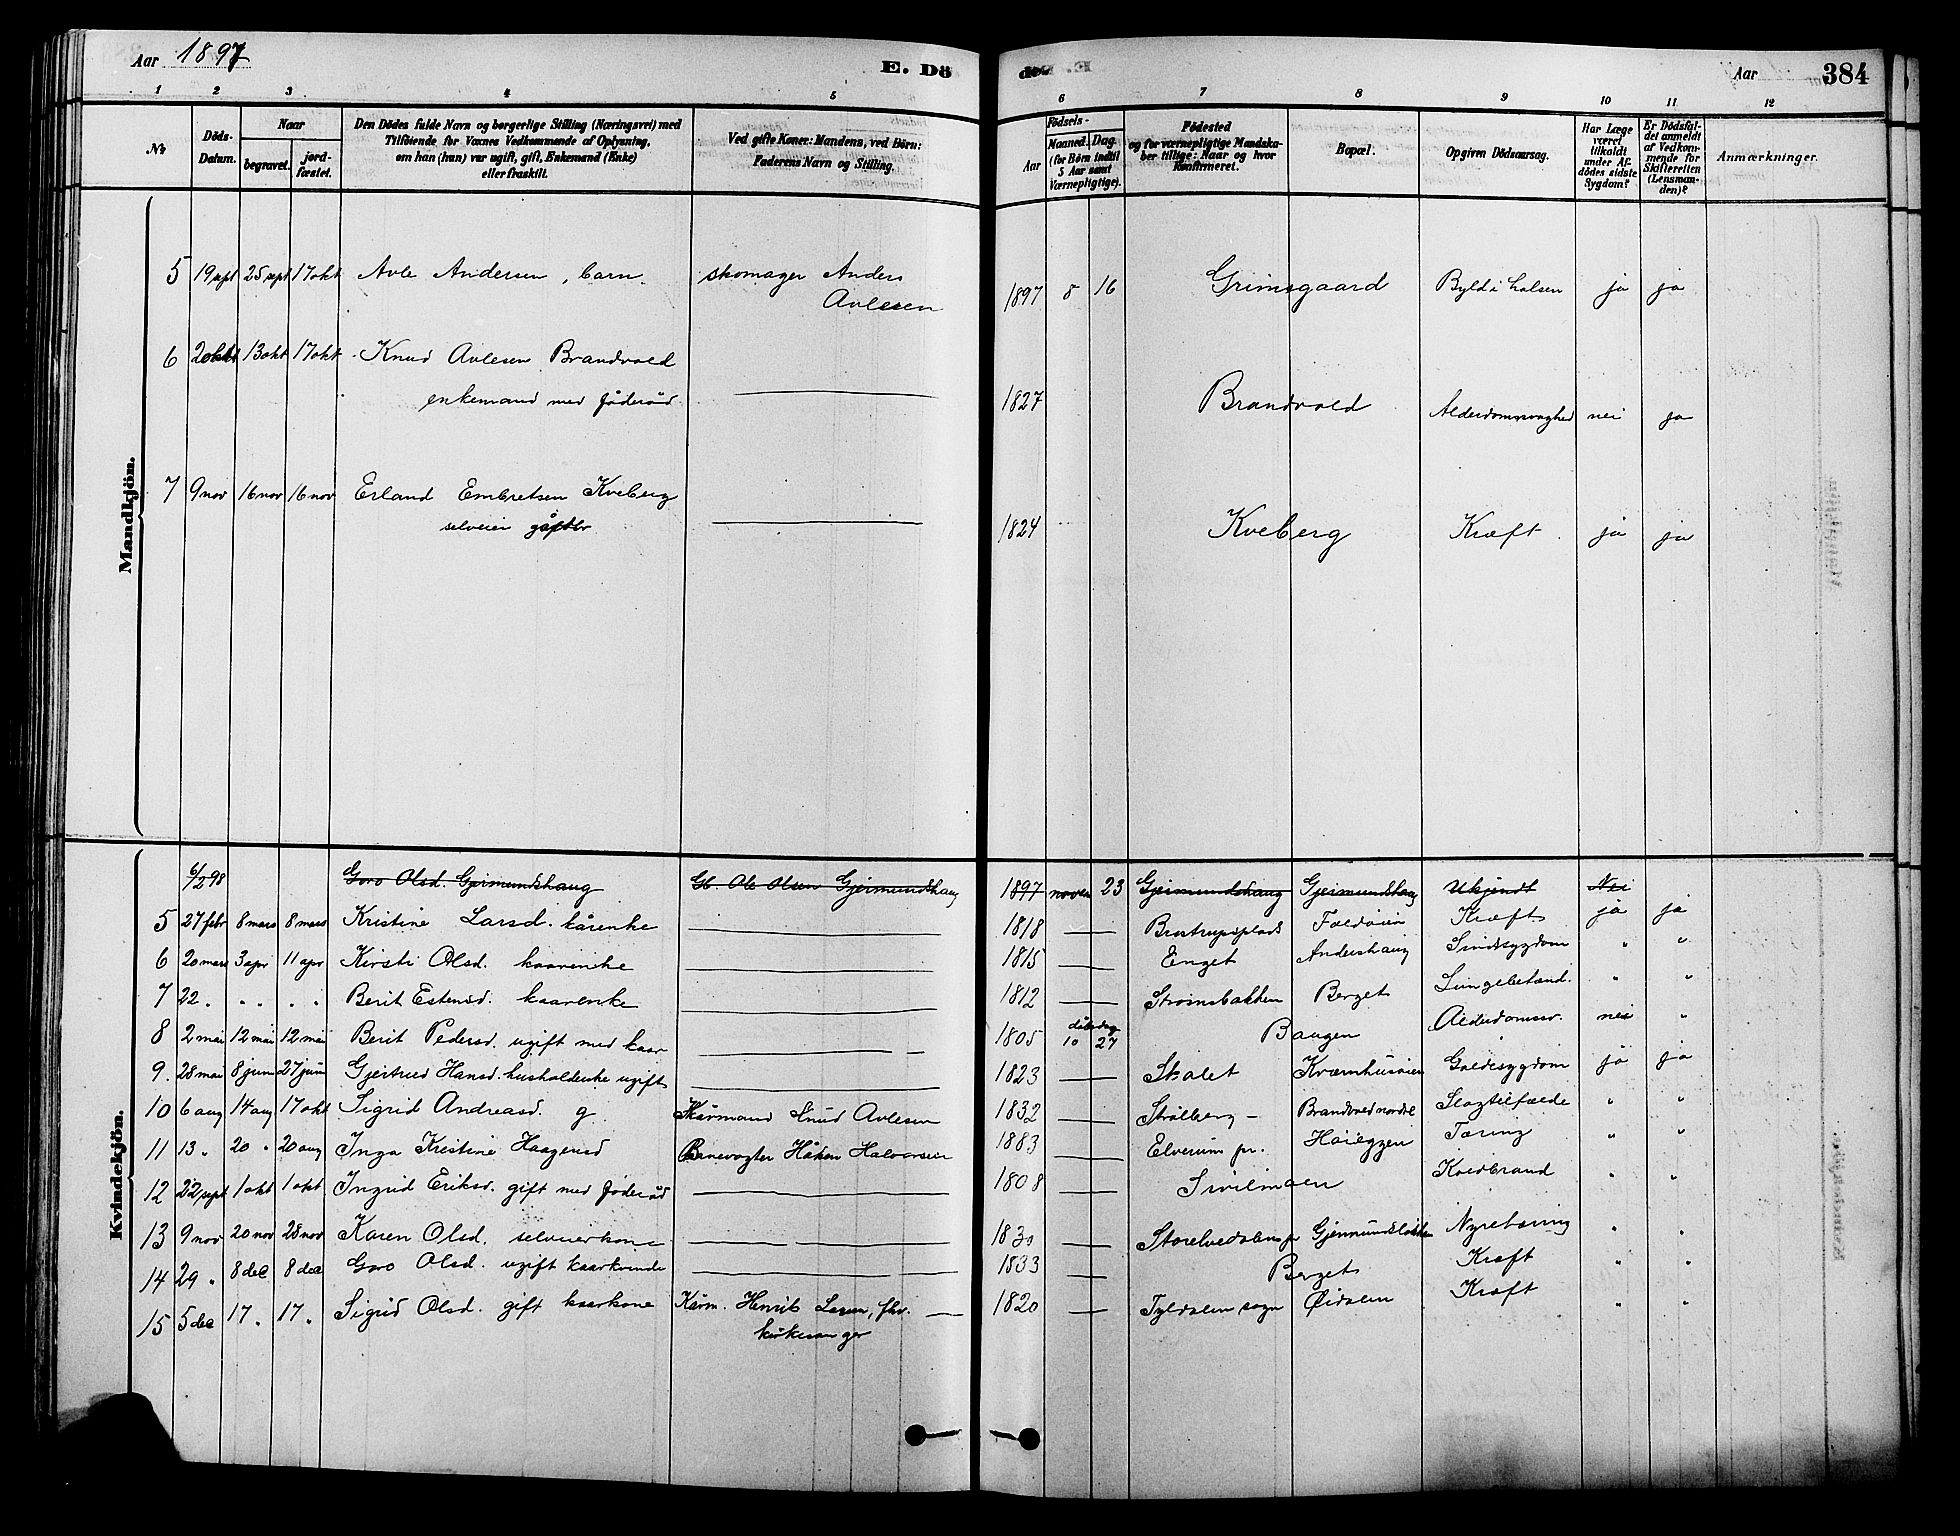 Aar 1897
E. Dö
de.
Aar
384
1 2 3 4 5 6 7 8 9 10 11 12
№
Döds-Datum.
Naar
begravet.
jord-fæstet.
Den Dödes fulde Navn og borgerlige Stilling (Næringsvei) med
Tilföiende for Voxnes Vedkommende af Oplysning,
om han (hun) var ugift, gift, Enkemand (Enke)
eller fraskilt.
Ved gifte Koner: Mandens, ved Börn:
Faderens Navn og Stilling.
Födsels-
Aar
Maaned. Dag.
(for Börn indtil
5 Aar samt
Værnepligtige).
Födested
og for værnepligtige Mandska-
ber tillige: Naar og hvor
Konfirmeret.
Bopæl.
Opgiven Dödsaarsag.
Har Læge
været
tilkaldt
under Af-
dödes sidste
Sygdom?
Er Dödsfal-
det anmeldt
af Vedkom-
mende for
Skifteretten
(Lensman-
den)?
Anmærkninger.
Mandkjön.
5 19 sept 25 sept 17 okt Avle Andersen, barn. skomager Anders 1897 8 16 Grimsgaard Byld i halsen ja ja
Avlesen
6 2 okt 13 okt 17 okt Knud Avlesen Brandvold
enkemand med föderåd 1827 Brandvold Alderdomssvaghed nei ja
7 9 nov 16 nov 16 nov Erland Embretsen Kveberg
selveier 1824 Kveberg Kræft ja ja
Kvindekjön.
6/2 98 Goro Olsd. Gjermundshaug Gb. Ole Olsen Gjermundshaug 1897 novem 23 Gjermundshaug Gjermundshaug Ukjendt Nei
5 27 febr 8 mars 8 mars Kristine Larsd. kårenke 1818 Brostrupsplads Foldöien Kræft ja ja
6 20 mars 3 apr 11 apr Kirsti Olsd. kaarenke 1815 Enget Andershaug Sindssygdom " "
7 22 " " " " " Berit Estensd. kaarenke 1812 Strömsbakken Berget Lungebetænd. " "
8 2 mai 12 mai 12 mai Berit Pedersd. ugift med kaar 1805 dåbsdag 10 27 Baugen Alderdomssv. nei "
9. 28 mai 8 juni 27 juni Gjertrud Hansd. husholderske ugift 1823 Skolet Kværnhusöien Galdesygdom ja ja
10 6 aug 14 aug 17 okt Sigrid Andreasd. g Kårmand Knud Avlesen 1832 Strålberg - Brandvold nordre Slagtilfælde " "
11 13 " 20 " 20 aug Inga Kristine Haagensd Banevogter Håken Halvorsen 1883 Elverum pr. Höieggen Tæring " "
12 22 sept 1 okt 1 okt Ingrid Eriksd. gift med föderåd 1808 Sivilmoen Koldbrand " "
13 9 nov 20 nov 28 nov Karen Olsd. selveierkone 1830 Storelvedalens pr Gjermundslökken Nyretæring " "
14 29 " 8 dec 8 dec Goro Olsd. ugift kaarkvinde 1833 Berget Kræft " "
15 5 dec 17 " 17 " Sigrid Olsd. gift kaarkone Kårm. Henrik Larsen, fhv. 1820 Tyldalen sogn Öidalen Kræft " "
kirkesanger